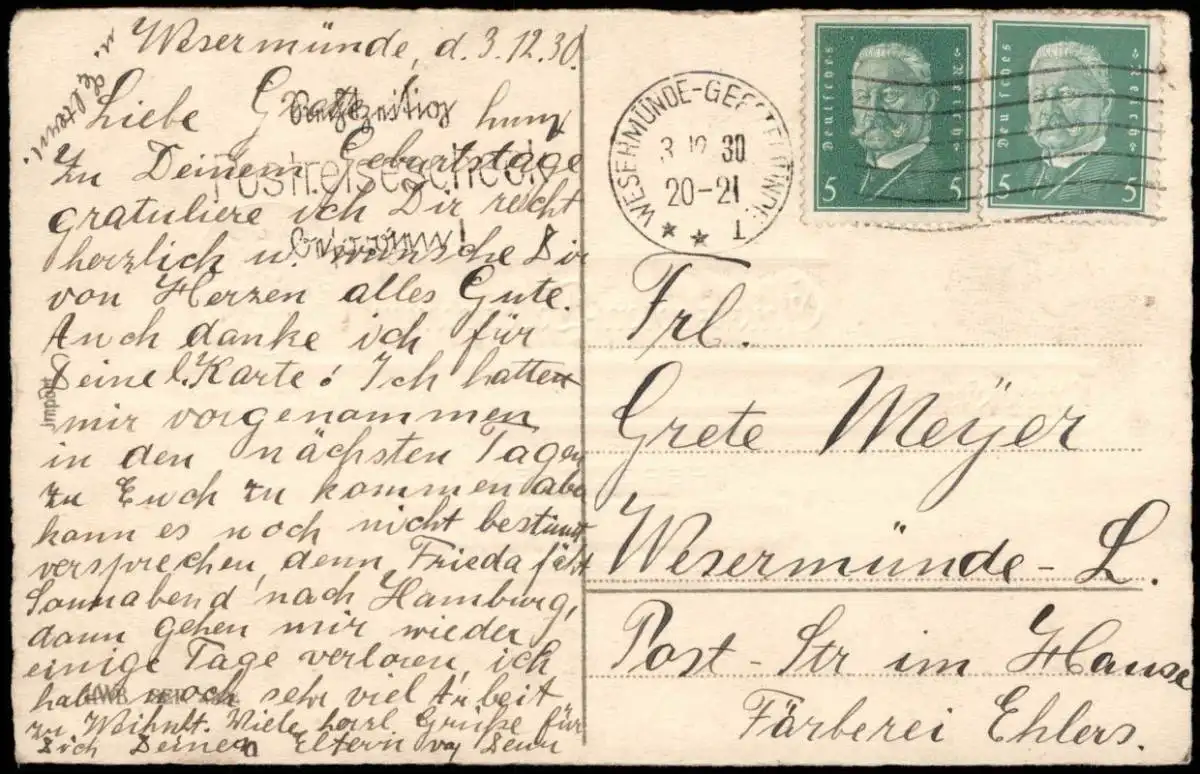 Wesermünde, d. 3.12.30.
Liebe Grete
Zu Deinem Geburtstage
gratuliere ich Dir recht
herzlich u. wünsche Dir
von Herzen alles Gute.
Auch danke ich für
Deine l. Karte! Ich hatte
mir vorgenommen
in den nächsten Tagen
zu Euch zu kommen aber
kann es noch nicht bestimmt
versprechen, denn Frieda fährt
Sonnabend nach Hamburg,
dann gehen mir wieder
einige Tage verloren, ich
habe noch sehr viel Arbeit
zu Weihnt. Viele herzl. Grüße für
Dich Deinen Eltern von
u. Eltern.
Rechtzeitig
Postreisescheck
besorgen!
WESERMÜNDE-GEESTEMÜNDE
3.12.30
20-21
* * 1
Deutsches Reich
5 5
Deutsches Reich
5 5
Frl.
Grete Meyer
Wesermünde-L.
Post-Str im Hause
Färberei Ehlers.
Import